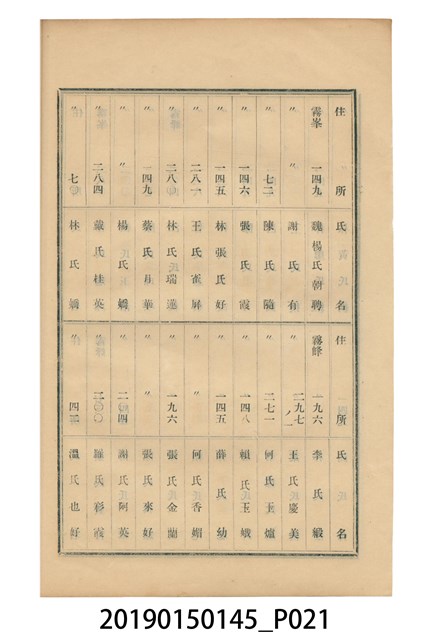 住所 氏名
霧峯 一四九 魏楊氏朝聘
〃 〃 謝氏有
〃 七二 陳氏隨
〃 一四六 張氏霞
〃 一四五 林張氏好
〃 二八一 王氏
〃 二八 林氏瑞蓮
〃 一四九 蔡氏月華
〃 〃 楊氏嬌
〃 二八四 戴氏桂英
〃 七 林氏嬌
住所 氏名
霧峰 一九六 李氏緞
〃 二九七ノ一 王氏慶美
〃 二七一 何氏玉爐
〃 一四八 賴氏玉娥
〃 一四五 薛氏幼
〃 〃 何氏香媚
〃 一九六 張氏金蘭
〃 〃 張氏來好
〃 二〇四 謝氏阿英
〃 二〇〇 羅氏彩霞
〃 四二 溫氏也好
20190150145_P021